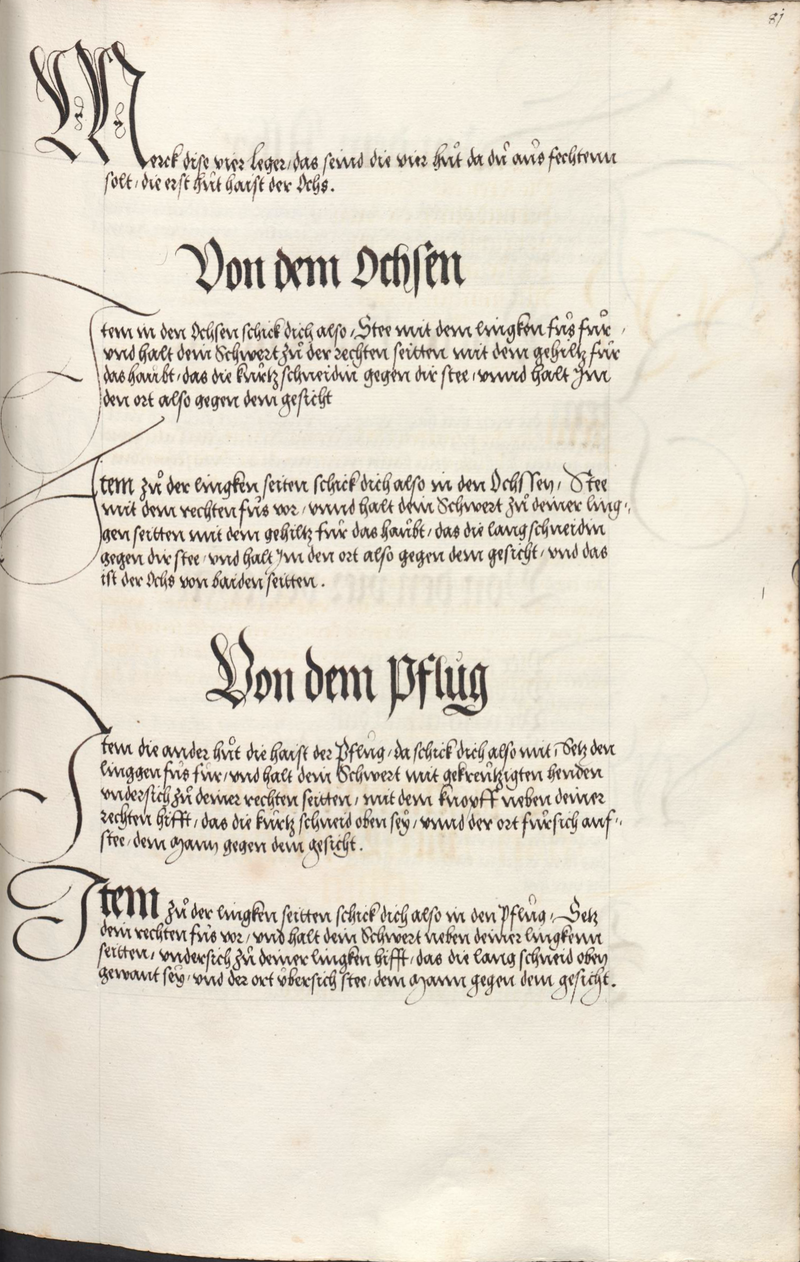 81
Merck dise vier leger, das seind die vier hůt da dů aus fechtenn
solt, die erst hůt haist der Ochs.
Von dem Ochsen
Item in den Ochsen schick dich also, Stee mit dem lingken fůs fůr,
vnd halt dein Schwert zů der rechten seitten mit dem gehiltz für
das haubt, das die kurtz schneidin gegen dir stee, vnnd halt Im
den ort also gegen dem gesicht
Item zů der lingken seiten schick dich also in den Ochssen, Stee
mit dem rechten fůs vor, vnnd halt dein Schwert zů deiner ling-
gen seitten mit dem gehiltz fur das haubt, das die lang schneidin
gegen dir stee, vnd halt Im den ort also gegen dem gesicht, vnd das
ist der Ochs von baiden seitten.
Von dem Pflůg
Item die ander hůt die haist der Pflůg, da schick dich also mit, Setz den
linggen fůs fur, vnd halt dein Schwert mit gekreutzigten henden
vndersich zů deiner rechten seitten, mit dem knopff neben deiner
rechten hifft, das die kurtz schneid oben seÿ, vnnd der ort fürsich auf-
stee, dem Mann gegen dem gesicht.
Item zů der lingken seitten schick dich also in den Pflůg, Setz
dein rechten fůs vor, vnd halt dein Schwert neben deiner lingkenn
seitten, vndersich zů deiner lingken hifft, das die lang schneid oben
gewant seÿ, vnd der ort vbersich stee, dem Mann gegen dem gesicht.